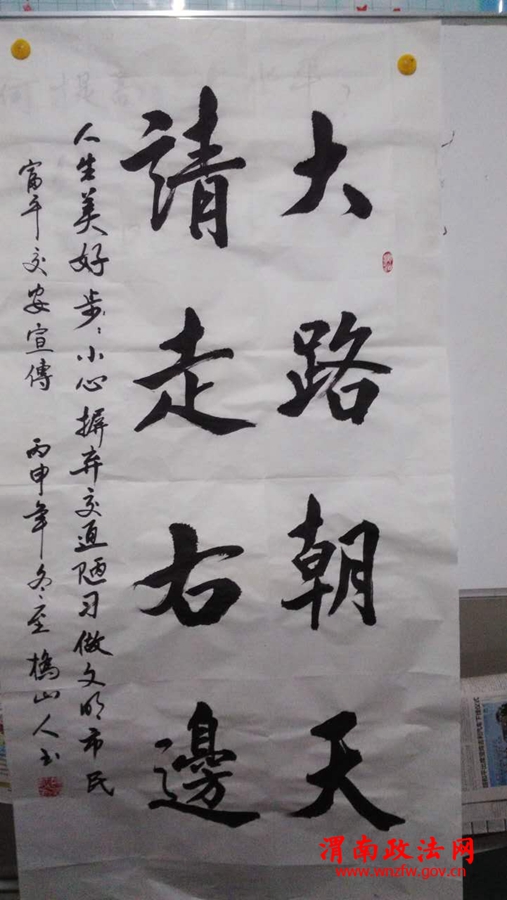 大路朝天
請走右邊
人生美好步〻小心摒弃交通陋习做文明市民
富平交安宣傳 丙申年冬至橋山人书
渭南政法网
www.wnzfw.gov.cn